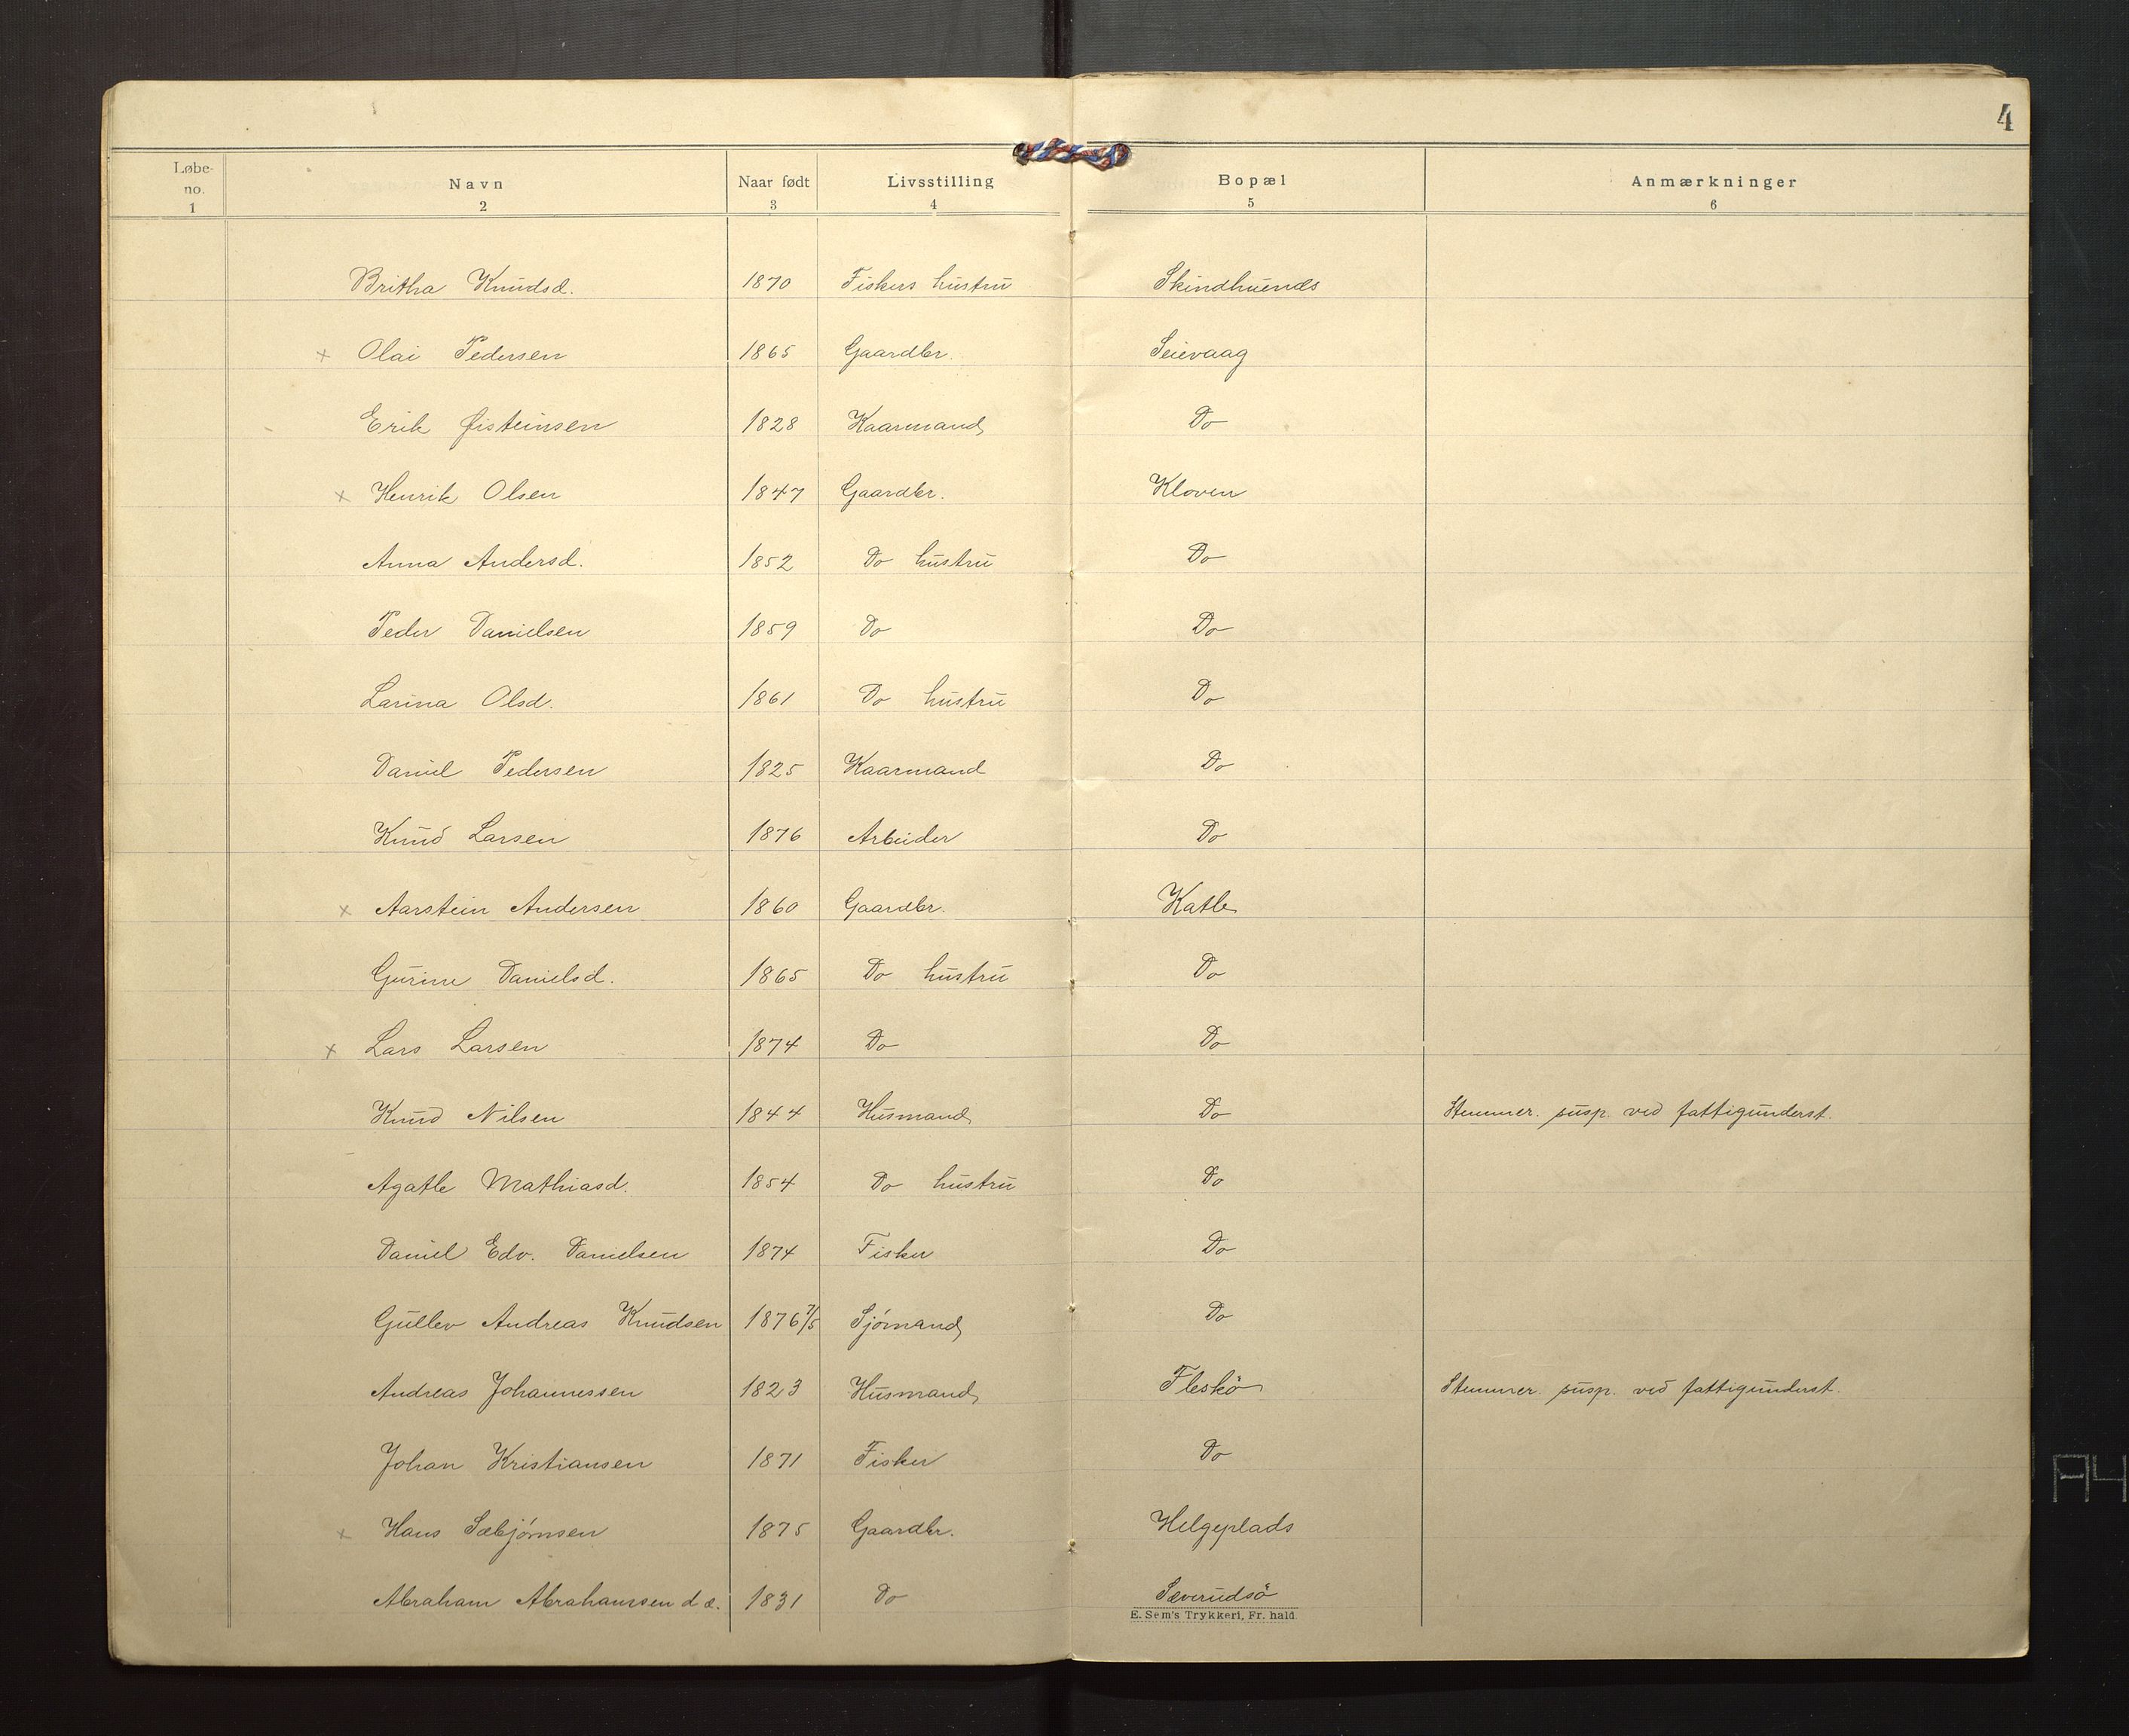 4
Løbe-no. Navn Naar født Livsstilling Bopæl Anmærkninger
1 2 3 4 5 6
Britha Knudsd. 1870 Fiskers hustru Skindhuenæs
x Olai Pedersen 1865 Gaardbr. Seievaag
Erik Øisteinsen 1828 Kaarmand Do
x Henrik Olsen 1847 Gaardbr. Kloven
Anna Andersd. 1852 Do hustru Do
Peder Danielsen 1859 Do Do
Larina Olsd. 1861 Do hustru Do
Daniel Pedersen 1825 Kaarmand Do
Knud Larsen 1876 Arbeider Do
x Aarstein Andersen 1860 Gaardbr. Katle
Gurine Danielsd. 1865 Do hustru Do
x Lars Larsen 1874 Do Do
Knud Nilsen 1844 Husmand Do Stemmer. susp. ved fattigunderst.
Agathe Mathiasd. 1854 Do hustru Do
Daniel Edv. Danielsen 1874 Fisker Do
Gullev Andreas Knudsen 1876 7/5 Sjómand Do
Andreas Johannessen 1823 Husmand Fleskö Stemmer. susp. ved fattigunderst.
Johan Kristiansen 1871 Fisker Do
x Hans Sæbjórnsen 1875 Gaardbr. Helgeplads
Abraham Abrahamsen d æ. 1831 Do Sæverudsö
E. Sem's Trykkeri, Fr. hald.
A4